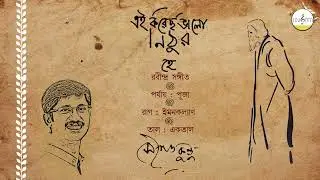 এই করেছ ভালো
নিঠুর
হে
রবীন্দ্র সঙ্গীত
পর্যায় : পূজা
রাগ : ইমনকল্যাণ
তাল : একতাল